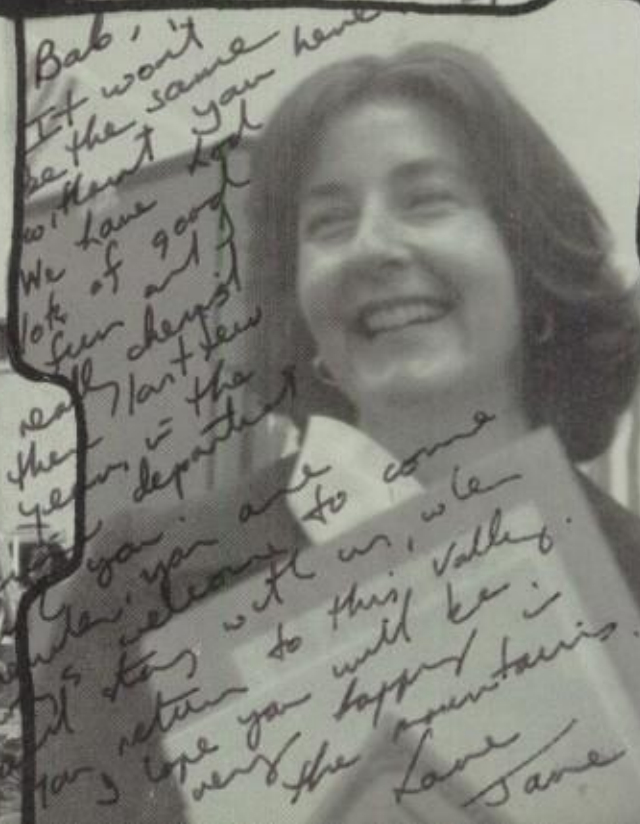 Bab, it
It won't
be the same
without you here.
We have had
lots of good
fun and I
really cherish
these last few
years in the
department
you. 
you are
welcome to come
and stay with us, when
you return to this valley.
I hope you will be
very happy in
the mountains.
Love
Jane